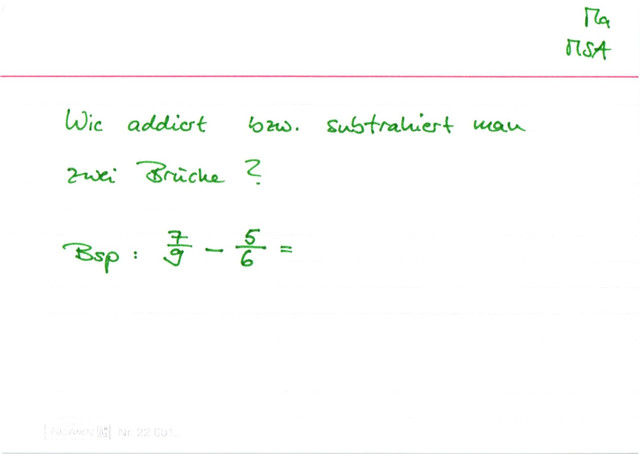 Ma
MSA
Wie addiert bzw. subtrahiert man
zwei Brüche ?
Bsp : 7/9 − 5/6 =
Nr. 22